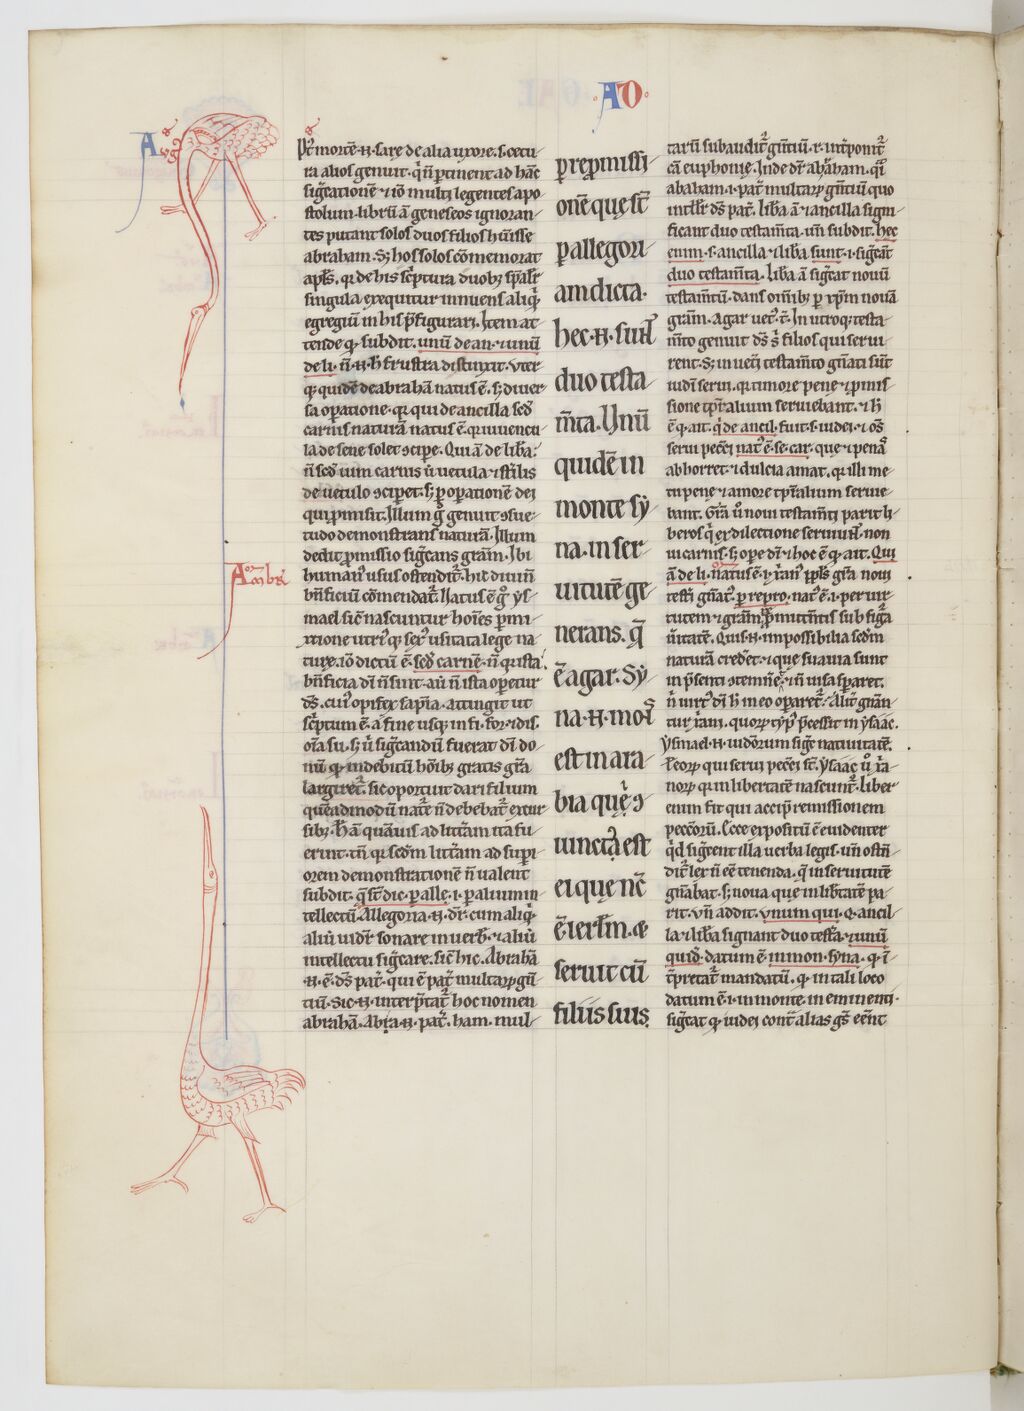 AD
A
Pꝰ mortē .n. sare de alia uxore .s. cetu
ra alios genuit. q̄ n̄ ꝑtinent ad hāc
sigͣtationē ⁊ iō multi legentes apo
stolum. librū ā geneseos ignoran
tes putant solos duos filios habuisse
abraham. Sꝫ hos solos cōmemorat
apl̄s. qꝛ de his scͥptura duobꝫ spālr̄
singula exequitur innuens aliqͥd
egregiū in his p̄figurari. Item at
tende qꝫ subdit. unū de an. ⁊ unū
de li. n̄ .n. h̄ frustra distinxit. Vter
qꝫ quidē de abrahā natus ē. sꝫ diuer
sa oꝑatione. qꝛ qui de ancilla sed̄
carnis naturā natus ē. qꝛ iuuencu
la de sene solet ɔcipe. Qui ā de lib̄a.
n̄ sed usum carnis ut uetula ⁊ stilis
de uetulo ɔciperet. sꝫ ꝑ oꝑationē dei
qui ꝓmisit. Illum gͦ genuit ɔsue
tudo demonstrans naturā. Illum
dedit ꝓmissio sigͣcans grām. Ibi
humanꝰ usus ostendit᷑. hic diuinū
bn̄ficiū cōmendat᷑. Natus ē gͦ ys
mael sic̄ nascuntur hoīes ꝑmi
xtione utriꝰqꝫ sexꝰ usitata lege na
ture. iō dictū ē. sed̄ carnē. n̄ qꝛ ista
bn̄ficia dī n̄ sunt. aū n̄ ista oꝑetur
dꝰ. cuiꝰ opifex sapīa. attingit ut
scͥptum ē. a fine usqꝫ in fi. for. ⁊ dis.
oīa su. sꝫ ubi sigͣcandū fuerat dī do
nū qꝫ indebitū hōībꝫ gratis grā
largiret᷑. sic oportuit dari filium
quēadmodū nat᷑e n̄ debebat᷑ extur
sibꝫ. Hā quāuis ad litt̄am ita fu
erunt. tn̄ qꝛ sedm̄ litt̄am ad supi
orem demonstrationē n̄ ualent
subdit. q̄ sūt dic. ꝑ alle. .i. ꝑ alium in
tellectū. Allegoria .n. dr̄. cum aliqͥd
aliud uidr̄ sonare in uerbꝭ. ⁊ aliud
intellectu sigͣcare. sic̄ hic. Abrahā
.n. ē. dꝰ pat᷑. qui ē pat᷑ multaꝝ gn̄
tiū. Sic .n. interp̄tat᷑ hoc nomen
abrahā. Abra .n. pat᷑. ham. mul
Ambrꝰ
ꝑ repmissi
onē que sūt
ꝑ allegori
am dicta.
hec .n. sunt
duo testa
m̄ta. Unū
quidē in
monte sy
na. in ser
uitutē ge
nerans. q̄
ē agar. Sy
na .n. mons
est in ara
bia que ɔ
iuncta est
ei que nc̄
ē ierlm̄. ⁊
seruit cū
filiis suis.
tarū subaudit᷑ gn̄tiū. ⁊ r. int̄ponit᷑
cā euphonie. Inde dr̄ abraham. qͥsi
abaham .i. pat᷑ multaꝝ gn̄tiū quo
intll̄r dꝰ pat᷑. lib̄a ā ⁊ ancilla signi
ficant duo testam̄ta. un̄ subdit. hec
enim .s. ancilla ⁊ lib̄a sunt .i. sigͣcāt
duo testam̄ta. lib̄a ā sigͣcat nouū
testam̄tū. dans oīnibꝫ ꝑ xp̄m nouā
grām. Agar uet᷑. t̄. In utroqꝫ testa
m̄to genuit dꝰ sibi filios qui serui
rent. Sꝫ in uet̄i testam̄to gn̄ati sūt
iudī serui. qꝛ timore pene ⁊ ꝓmis
sione tp̄ralium seruiebant. ⁊ h̄
ē qꝫ ait. qͥ de ancil. fuit .s. iudei. ⁊ oēs
serui pecc̄i natꝰ ē. se. car. que ⁊ penā
abhorret. ⁊ dulcia amat. qꝛ illi me
tu pene ⁊ amore tp̄ralium seruie
bant. Grā uͦ noui testam̄ti parit li
beros qͥ ex dilectione seruiunt. non
ui carnis. sꝫ ope dī ⁊ hoc ē qꝫ ait. Qui
ā de li. natus ē .i. xp̄ianꝰ ppl̄s grā noui
testīi gn̄atꝰ. ꝑ repro. natꝰ ē .i. per uir
tutem ⁊ grām ꝓmittentis sub figͣa
u̅itatē. Quis .n. impossibilia sedm̄
naturā credet᷑. ⁊ que suauia sunt
in p̄senti ɔtemn̄e. ⁊ n̄ uisa spa̅ret.
n̄ uirtꝰ dī h̄ in eo oparet᷑. Alit᷑ gn̄an
tur xp̄iani. quoꝝ typꝰ p̄cessit in ysaac.
Ysmael .n. iudeorum sigͣt natiuitatē.
⁊ eoꝝ qui serui pecc̄i sūt. ysaac uͦ xp̄ia
noꝝ qꝛ in libertatē nascunt᷑. liber
enim fit qui accip̄ remissionem
pecc̄orū. Ecce expositū ē euidenter
qͥd sigͣcent illa uerba legis. un̄ ostn̄
dit᷑ lex n̄ eē tenenda. q̄ in seruitutē
gn̄abat. sꝫ noua que in lib̄tatē pa
rit. Vn̄ addit. unum qui. Q. ancil
la ⁊ lib̄a signant duo testīa. ⁊ unū
quid. datum ē in mon. syna. qꝫ i
t̄pretat᷑ mandatū. qꝫ in tali loco
datum ē .i. in monte. in eminenti.
sigͣcat qꝫ iudei cont᷑ alias gēs eēnt